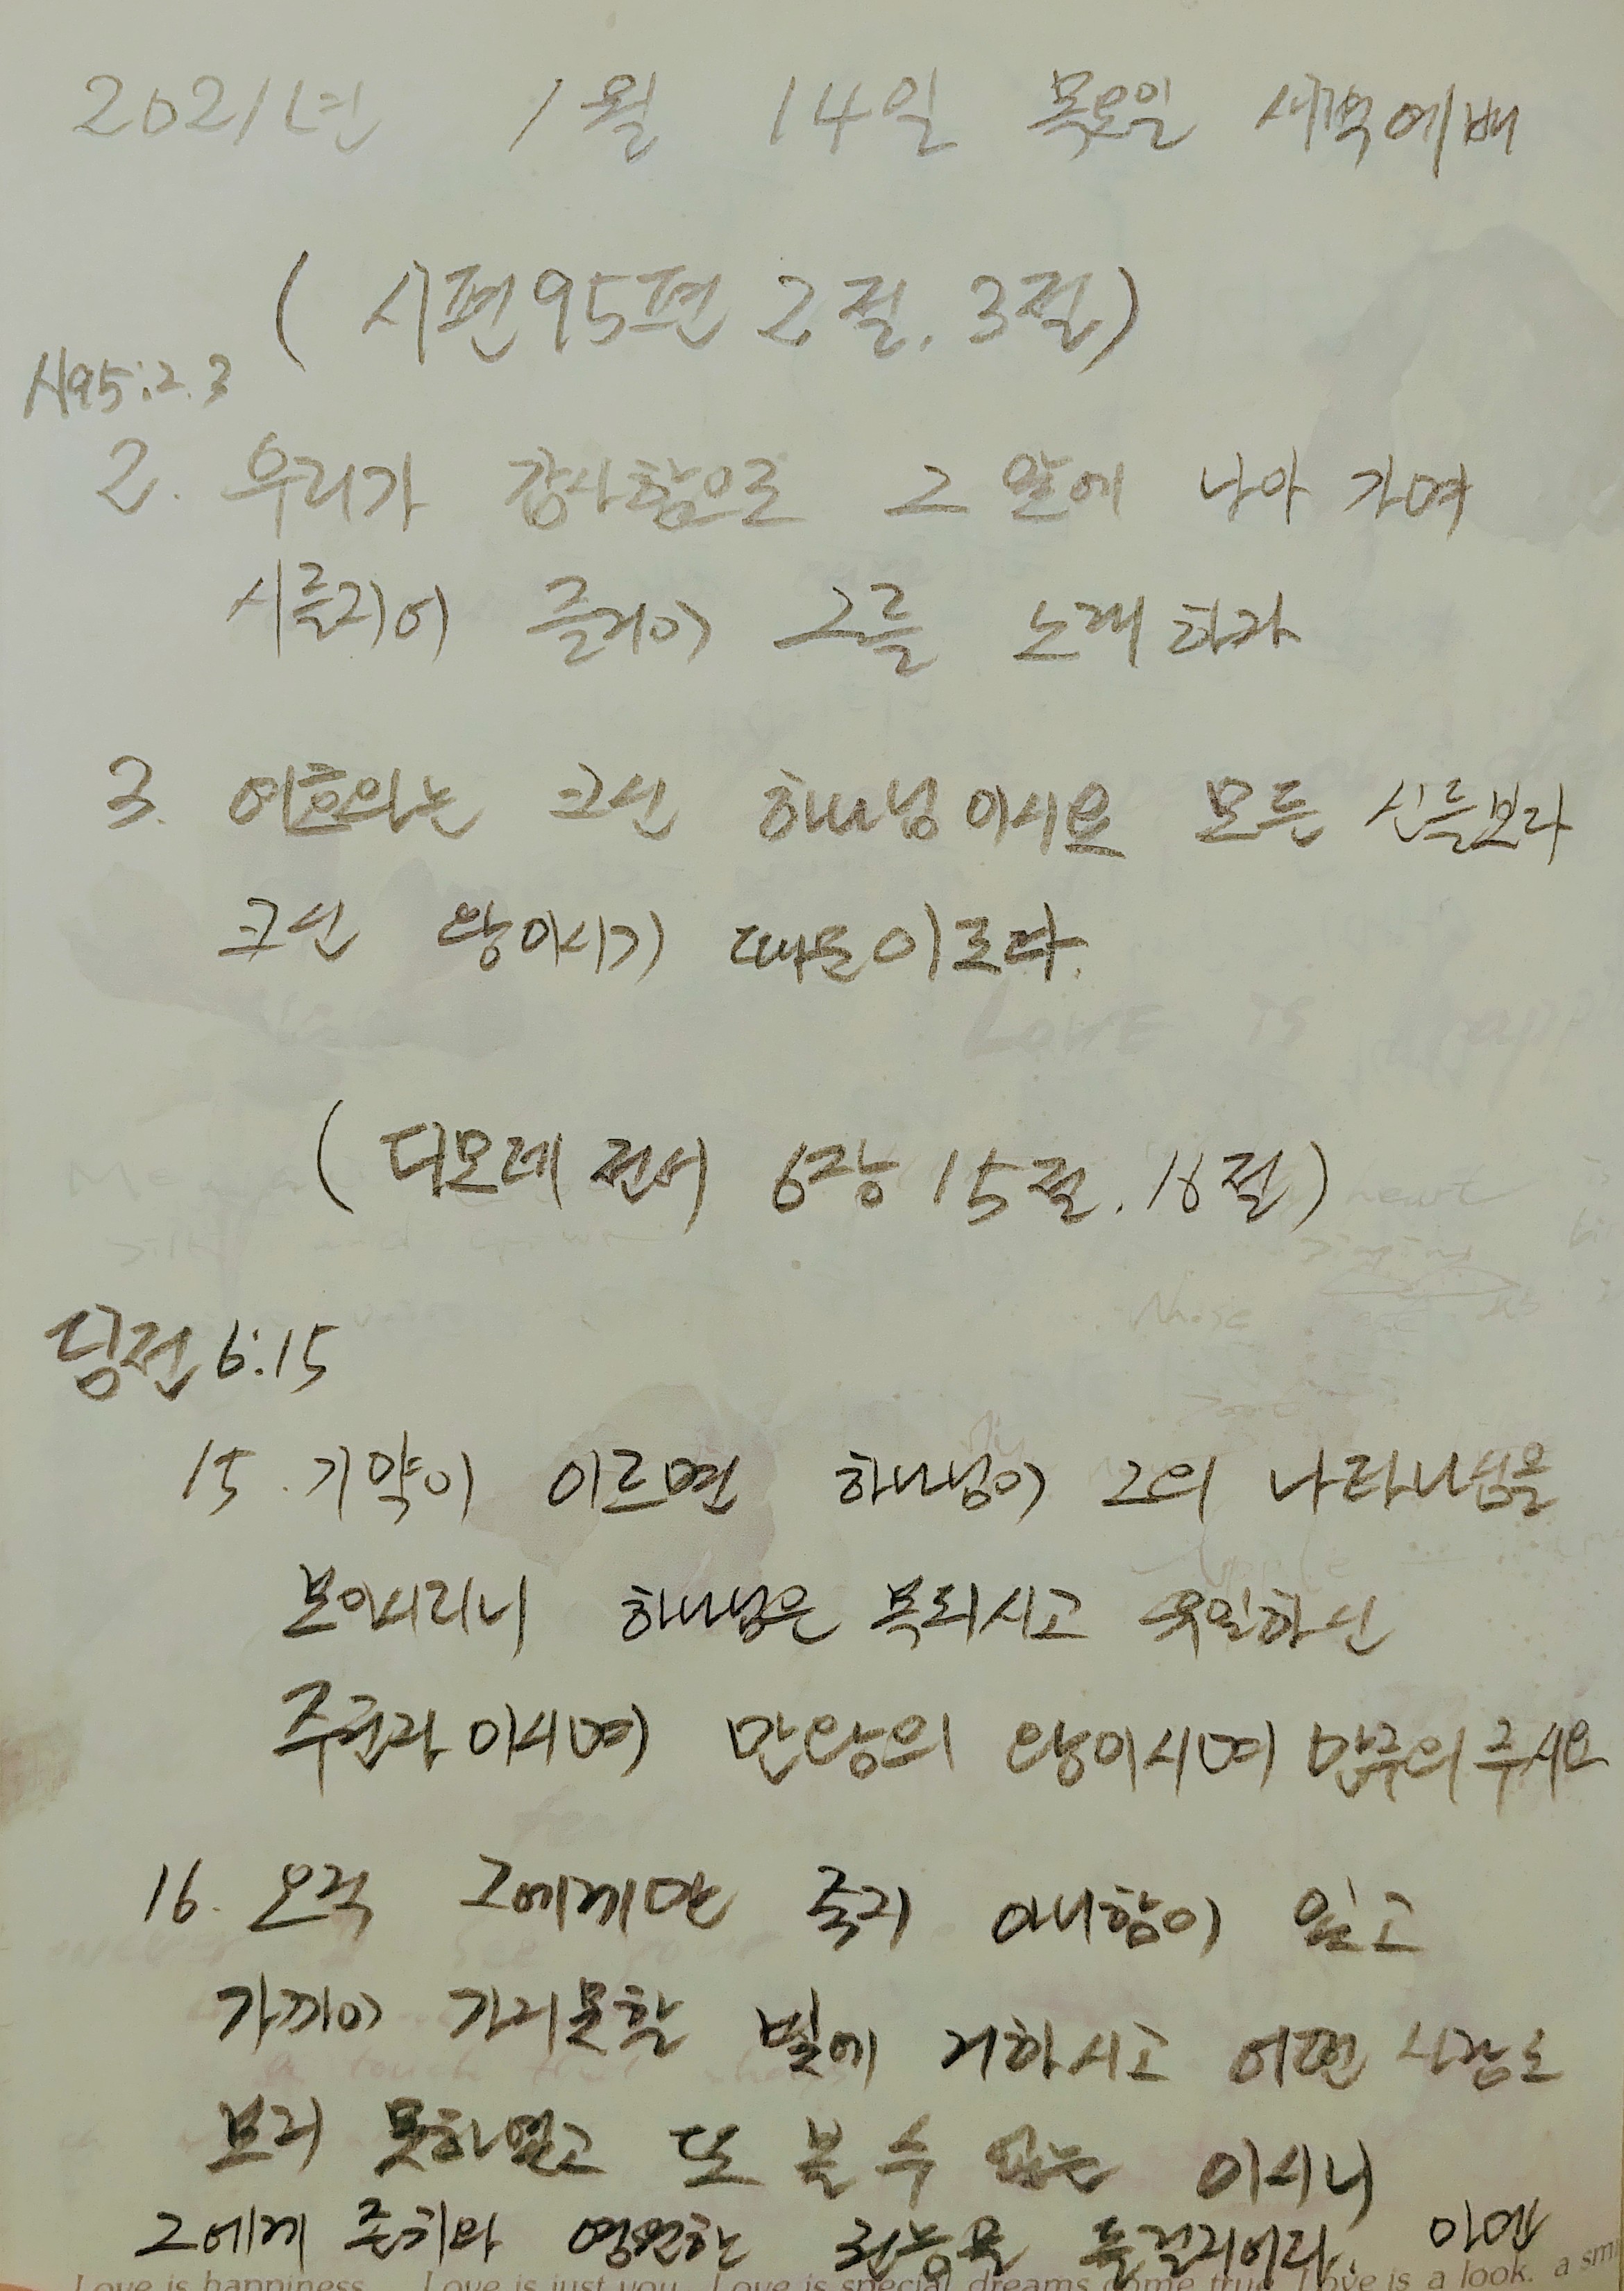 2021년 1월 14일 목요일 새벽예배
(시편95편 2절, 3절)
시95:2.3
2. 우리가 감사함으로 그 앞에 나아 가며
시를지어 즐거이 그를 노래하자
3. 여호와는 크신 하나님이시요 모든 신들보다
크신 왕이시기 때문이로다.
(디모데전서 6장 15절, 16절)
딤전 6:15
15. 기약이 이르면 하나님이 그의 나타나심을
보이시리니 하나님은 복되시고 유일하신
주권자이시며 만왕의 왕이시며 만주의 주시요
16. 오직 그에게만 죽지 아니함이 있고
가까이 가지못할 빛에 거하시고 어떤 사람도
보지 못하였고 또 볼 수 없는 이시니
그에게 존귀와 영원한 권능을 돌릴지어다. 아멘
Love is happiness. Love is just you. Love is special dreams come true. Love is a look. a smi